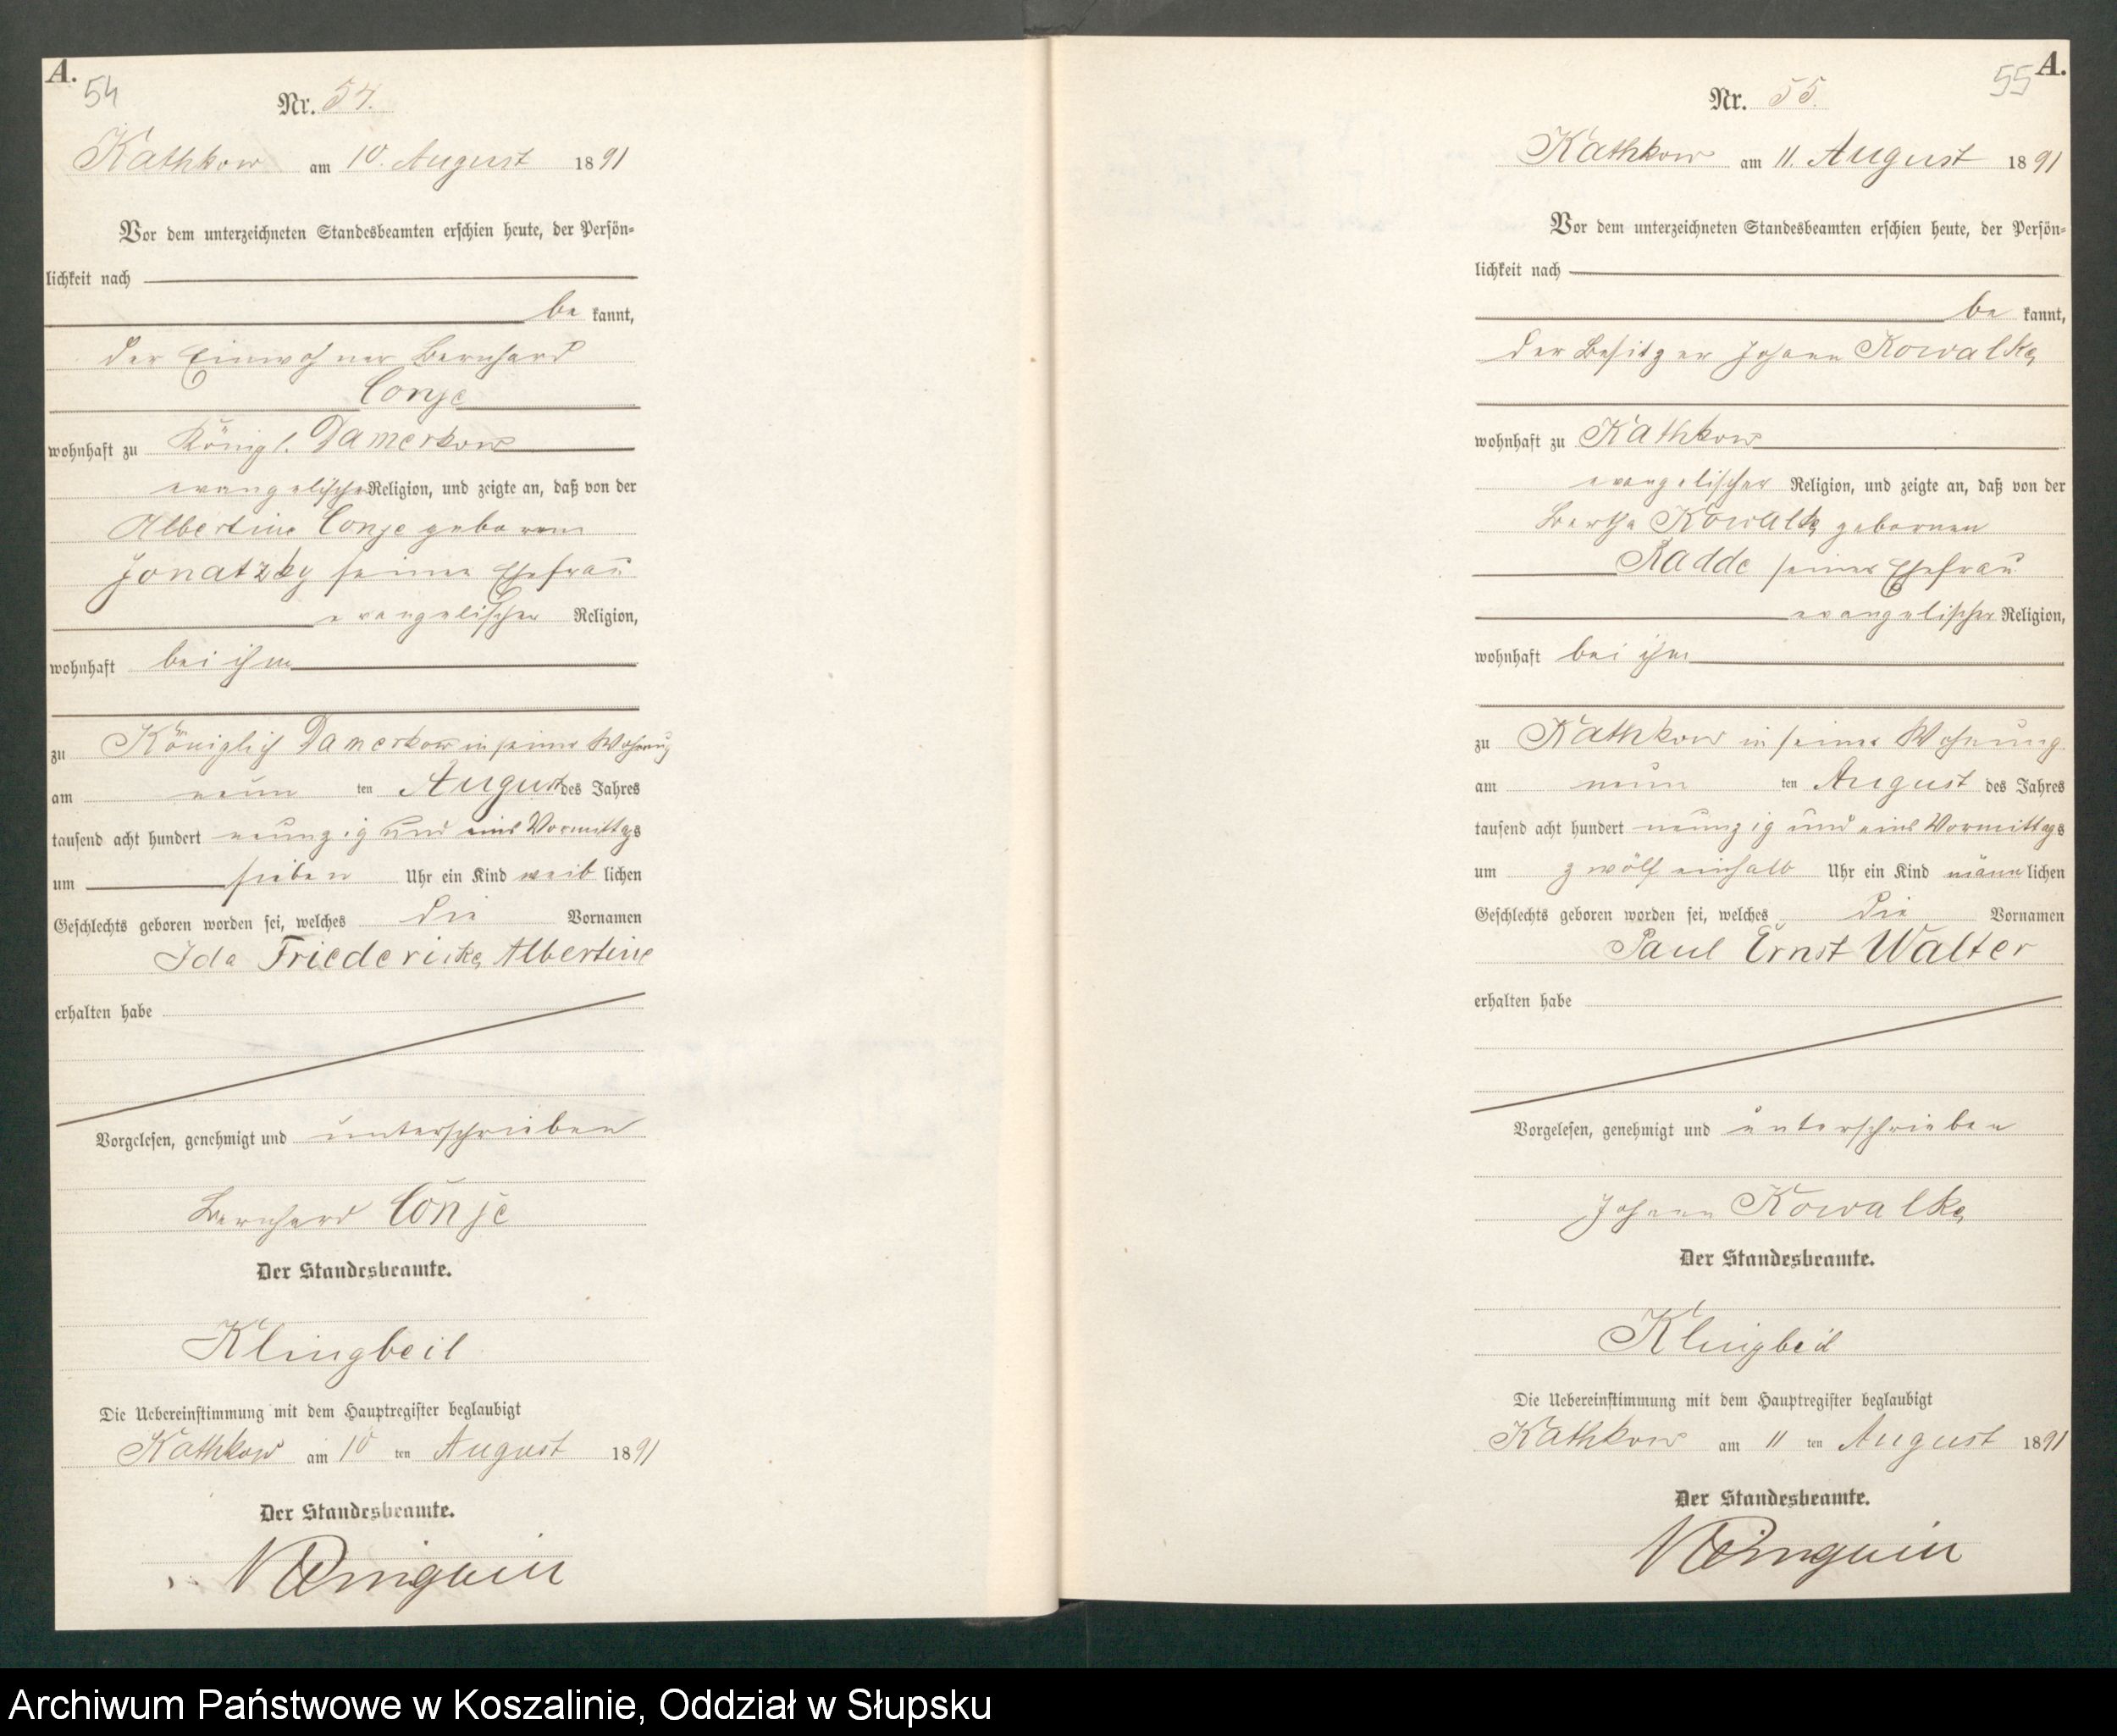 A.
54
Nr. 54.
Kathkow am 10. August 1891
Vor dem unterzeichneten Standesbeamten erschien heute, der Persön-
lichkeit nach
be kannt,
der Einwohner Bernhard
Conje
wohnhaft zu Königl. Damerkow
evangelischer Religion, und zeigte an, daß von der
Albertine Conje geborene
Jonatzky seiner Ehefrau
evangelischer Religion,
wohnhaft bei ihm
zu Königlich Damerkow in seiner Wohnung
am neun ten August des Jahres
tausend acht hundert neunzig und eins Vormittags
um sieben Uhr ein Kind weib lichen
Geschlechts geboren worden sei, welches die Vornamen
Ida Friedericke Albertine
erhalten habe
Vorgelesen, genehmigt und unterschrieben
Bernhard Conje
Der Standesbeamte.
Klingbeil
Die Uebereinstimmung mit dem Hauptregister beglaubigt
Kathkow am 10 ten August 1891
Der Standesbeamte.
A.
55
Nr. 55.
Kathkow am 11. August 1891
Vor dem unterzeichneten Standesbeamten erschien heute, der Persön-
lichkeit nach
be kannt,
der Besitzer Johann Kowalke
wohnhaft zu Kathkow
evangelischer Religion, und zeigte an, daß von der
Bertha Kowalke gebornen
Radde seiner Ehefrau
evangelischer Religion,
wohnhaft bei ihm
zu Kathkow in seiner Wohnung
am neun ten August des Jahres
tausend acht hundert neunzig und eins Vormittags
um zwölf einhalb Uhr ein Kind männ lichen
Geschlechts geboren worden sei, welches die Vornamen
Paul Ernst Walter
erhalten habe
Vorgelesen, genehmigt und unterschrieben
Johann Kowalke
Der Standesbeamte.
Klingbeil
Die Uebereinstimmung mit dem Hauptregister beglaubigt
Kathkow am 11 ten August 1891
Der Standesbeamte.
Archiwum Państwowe w Koszalinie, Oddział w Słupsku